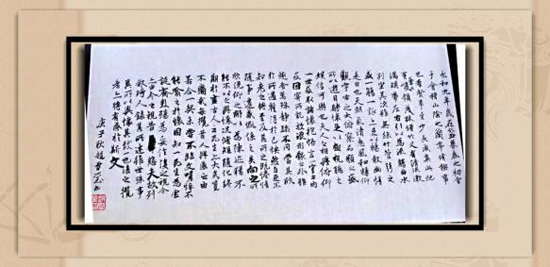 永和九年歲在癸丑暮春之初會
于會稽山陰之蘭亭脩禊事
也羣賢畢至少長咸集此地
有崇山峻領茂林脩竹又有清流激
湍暎帶左右引以為流觴曲水
列坐其次雖無絲竹管弦之
盛一觴一詠亦足以暢敘幽情
是日也天朗氣清惠風和暢仰
觀宇宙之大俯察品類之盛
所以遊目騁懷足以極視聽之
娛信可樂也夫人之相與俯仰
一世或取諸懷抱悟言一室之內
或因寄所託放浪形骸之外雖
趣舍萬殊靜躁不同當其欣
於所遇暫得於己怏然自足不
知老之將至及其所之既惓情
隨事遷感慨係之矣向之所
欣俛仰之間以為陳迹猶不
能不以之興懷況脩短隨化終
期於盡古人云死生亦大矣豈
不痛哉每攬昔人興感之由
若合一契未嘗不臨文嗟悼不
能喻之於懷固知一死生為虛
誕齊彭殤為妄作後之視今
亦由今之視昔悲夫故列
敘時人錄其所述雖世殊事
異所以興懷其致一也後之攬
者亦將有感於斯文
庚子秋